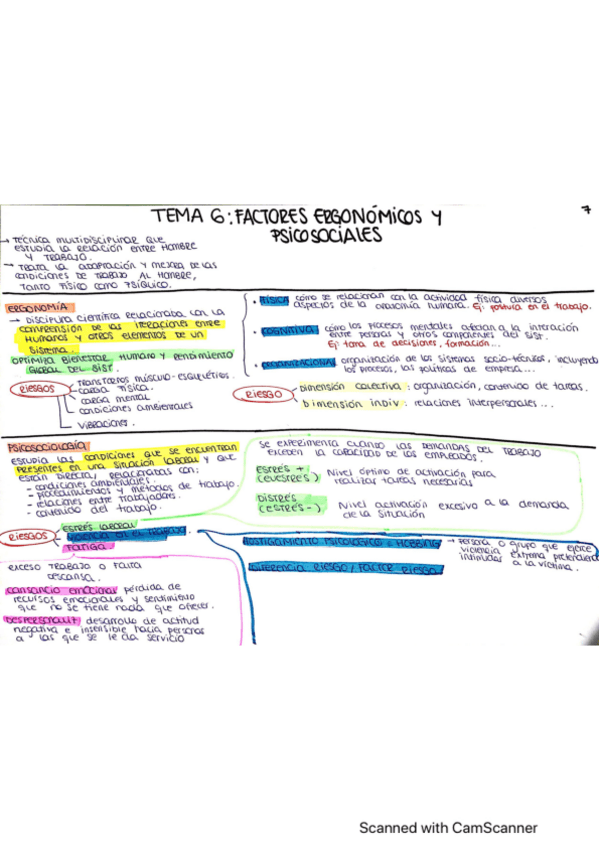 TEMA 6: FACTORES ERGONÓMICOS Y
PSICOSOCIALES
7
→ TÉCNICA MULTIDISCIPLINAR QUE
ESTUDIA LA RELACIÓN ENTRE HOMBRE
Y TRABAJO.
→ TRATA LA ADAPTACIÓN Y MEJORA DE LAS
CONDICIONES DE TRABAJO AL HOMBRE,
TANTO FÍSICO COMO PSÍQUICO.
ERGONOMÍA
→ DISCIPLINA CIENTÍFICA RELACIONADA CON LA
COMPRENSIÓN DE LAS ITERACIONES ENTRE
HUMANOS Y OTROS ELEMENTOS DE UN
SISTEMA.
OPTIMIZA BIENESTAR HUMANO Y RENDIMIENTO
GLOBAL DEL SIST.
RIESGOS
TRANSTORNOS MÚSCULO-ESQUELÉTICOS.
CARGA FÍSICA.
CARGA MENTAL
CONDICIONES AMBIENTALES
VIBRACIONES.
• FÍSICA cómo se relacionan con la actividad física diversos
aspectos de la anatomía humana. Ej: postura en el trabajo.
• COGNITIVA: cómo los procesos mentales afectan a la interacción
entre personas y otros componentes del sist.
Ej. toma de decisiones, formación...
• ORGANIZACIONAL organización de los sistemas socio-técnicos, incluyendo
los procesos, las políticas de empresa...
RIESGO
Dimensión colectiva: organización, contenido de tareas.
Dimensión indiv: relaciones interpersonales...
PSICOSOCIOLOGÍA
ESTUDIA LAS CONDICIONES QUE SE ENCUENTRAN
PRESENTES EN UNA SITUACIÓN LABORAL Y QUE
ESTÁN DIRECTA/ RELACIONADAS CON:
- CONDICIONES AMBIENTALES.
- PROCEDIMIENTOS Y MÉTODOS DE TRABAJO.
- RELACIONES ENTRE TRABAJADORES.
- CONTENIDO DEL TRABAJO.
RIESGOS
ESTRÉS LABORAL
VIOLENCIA EN EL TRABAJO
FATIGA
SE EXPERIMENTA CUANDO LAS DEMANDAS DEL TRABAJO
EXCEDEN LA CAPACIDAD DE LOS EMPLEADOS.
ESTRÉS + (EUESTRÉS) Nivel óptimo de activación para
realizar tareas necesarias
DISTRÉS (ESTRÉS-) Nivel activación excesivo a la demanda
de la situación
HOSTIGAMIENTO PSICOLÓGICO O MOBBING → PERSONA O GRUPO QUE EJERCE
VIOLENCIA EXTREMA PRETENDIENDO
A LA VÍCTIMA.
DIFERENCIA RIESGO/FACTOR RIESGO
EXCESO TRABAJO O FALTA
DESCANSO.
CANSANCIO EMOCIONAL PÉRDIDA DE
RECURSOS EMOCIONALES Y SENTIMIENTO
QUE NO SE TIENE NADA QUE OFRECER.
DESPERSONALIT desarrollo de actitud
negativa e insensible hacia personas
a las que se le da servicio
Scanned with CamScanner